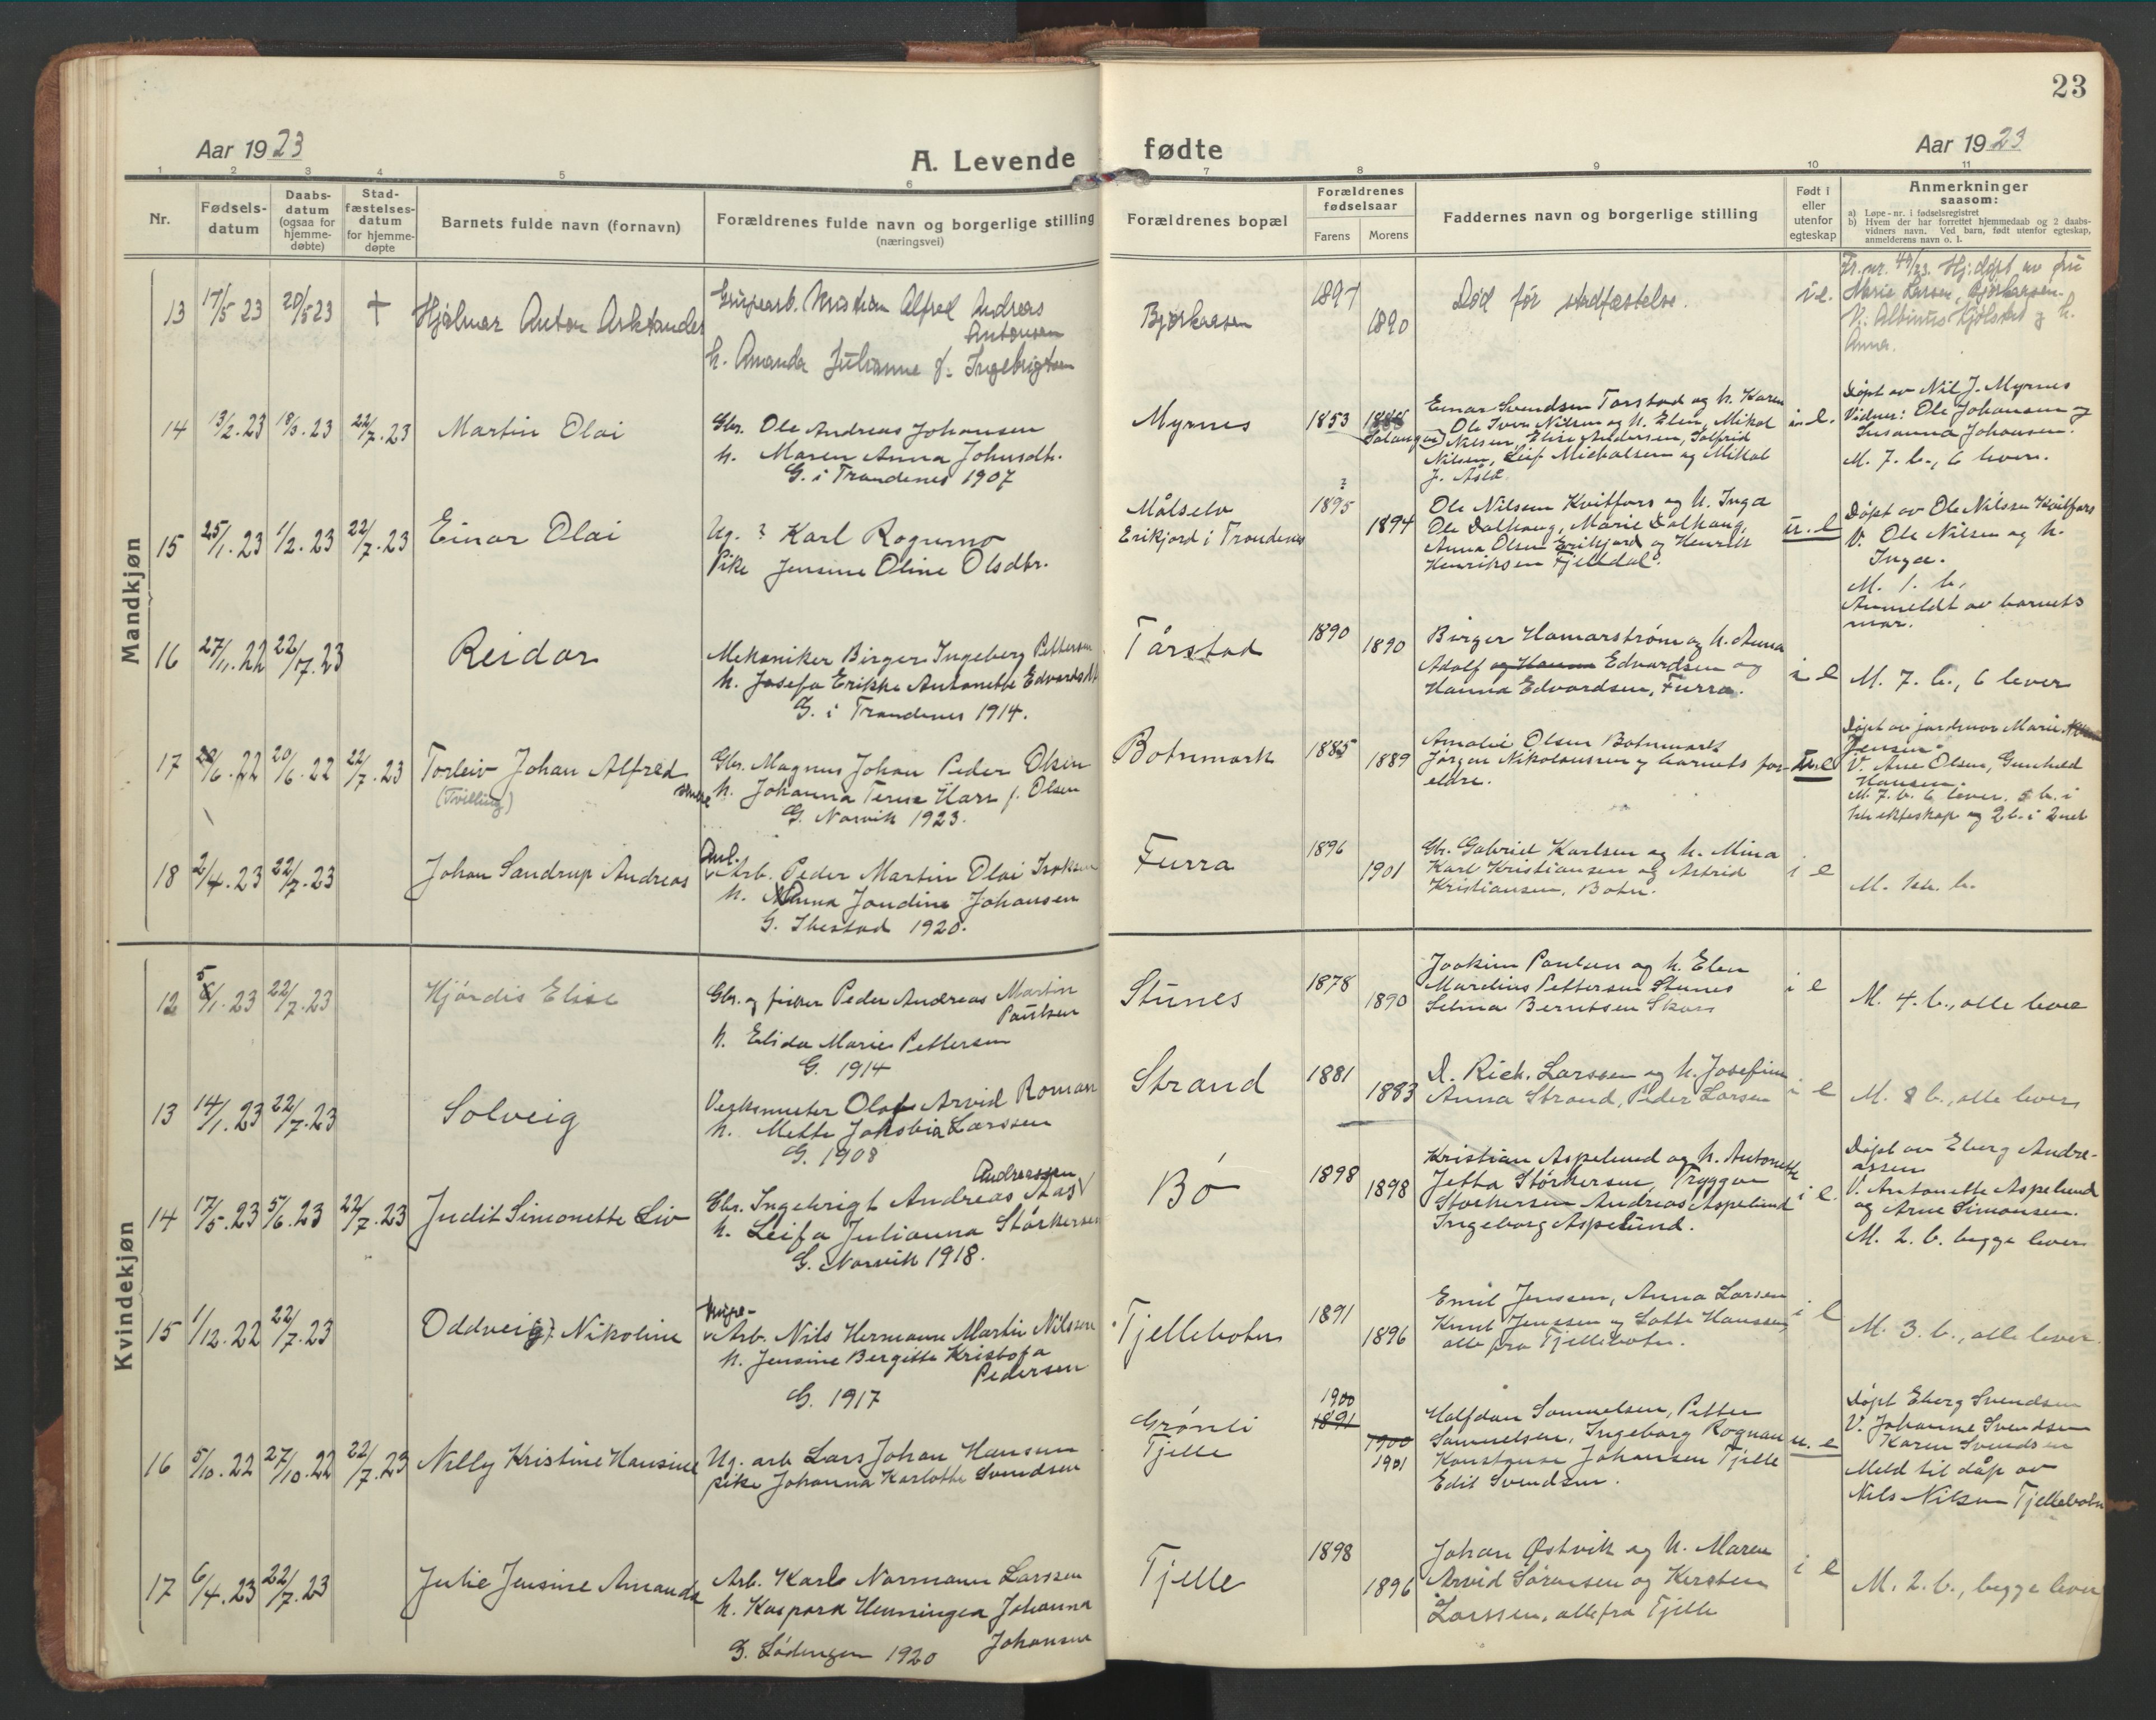 23
Aar 1923
A. Levende fødte
Aar 1923
1 2 3 4 5 6 7 8 9 10 11
Nr.
Fødsels-
datum
Daabs-
datum
(ogsaa for
hjemme-
døbte)
Stad-
fæstelses-
datum
for hjemme-
døpte
Barnets fulde navn (fornavn)
Forældrenes fulde navn og borgerlige stilling
(næringsvei)
Forældrenes bopæl
Forældrenes
fødselsaar
Farens Morens
Faddernes navn og borgerlige stilling
Født i
eller
utenfor
egteskap
Anmerkninger
saasom:
a) Løpe-nr. i fødselsregistret
b) Hvem der har forrettet hjemmedaab og 2 daabs-
vidners navn. Ved barn, født utenfor egteskap,
anmelderens navn o. l.
Mandkjøn
13 17/5 23 20/5 23 † Hjalmar Anton Arktander
Grubearb. Kristian Alfred Andreas
Antonsen
h. Amanda Julianne f. Ingebrigtsen
Bjørkaasen
1897 1890
Død før stadfæstelse.
i e.
Fr. nr. 49/23. Hj. døpt av fru
Marie Larsen, Bjørkaasen.
V. Albinus Kjølstad og h.
Anna.
14 13/2.23 18/3.23 22/7.23 Martin Olai
Gbr. Ole Andreas Johansen
h. Maren Anna Johnsdtr.
G. i Trondenes 1907
Myrnes
1853 1886
Salangen
Einar Svendsen Torstad og h. Karen
Ole Iver Nilsen og h. Elen, Mikal
Nilsen, Elise Andersen, Solfrid
Nilsen, Leif Mickalsen og Mikal
i e.
Døpt av Nil J. Myrnes
Vidner: Ole Johansen og
Susanna Johansen.
M. 7. b., 6 lever.
15 25/1.23 1/2.23 22/7.23 Einar Olai
Ug. ? Karl Rognmo
Pike Jensine Oline Olsdtr.
Målselv
Erikjord i Trondenes
?
1895 1894
Ole Nilsen Kvitfors og h. Inga
Ole Dalhaug, Marie Dalhaug,
Anna Olsen Erikjord og Henrik
Henriksen Fjelldal.
u. e
Døpt av Ole Nilssen Kvitfors
V. Ole Nilsen og h.
Inga.
M. 1. b.
Anmeldt av barnets
mor.
16 27/11.22 22/7.23 Reidar
Mekaniker Birger Ingeberg Pettersen
h. Josefa Erikke Antonette Edvardsdt
G. i Trondenes 1914.
Tårstad
1890 1890
Birger Hamarstrøm og h. Anna
Adolf og Hanna Edvardsen og
Hanna Edvardsen, Furra.
i e
M. 7. b., 6 lever
17 20/6.22 20/6.22 22/7.23 Torleiv Johan Alfred
(Tvilling)
Gbr. Magnus Johan Peder Olsen
h. Johanna Terese Hars f. Olsen
G. Narvik 1923.
Botnmark
1885 1889
Amalie Olsen Botnmark
Jørgen Nikolaussen og barnets for-
eldre.
u. e
Døpt av jordmor Marie
Jensen.
V. Ane Olsen, Gunhild
Hansen.
M. 7. b. 6 lever. 5 b. i
1ste ekteskap og 2 b. i 2net
18 2/4.23 22/7.23 Johan Sandrup Andreas
Anl.
Arb. Peder Martin Olai Isaksen
h. Anna Jondine Johansen
G. Ibestad 1920.
Furra
1896 1901
Gbr. Gabriel Karlsen og h. Mina
Karl Kristiansen og Astrid
Kristiansen, Botn.
i e
M. 1ste. b.
Kvindekjøn
12 5/1.23 22/7.23 Hjørdis Elise
Gbr. og fisker Peder Andreas Martin
Paulsen
h. Elida Marie Pettersen
G. 1914
Stunes
1878 1890
Joakim Paulsen og h. Elen
Mardius Pettersen Stunes
Selma Berntsen Skars
i e
M. 4. b., alle lever
13 14/1.23 22/7.23 Solveig
Verksmester Olaf Arvid Roman
h. Mette Jakobia Larssen
G. 1908
Strand
1881 1883
D. Rich. Larssen og h. Josefine
Anna Strand, Peder Larsen
i e
M. 8 b., alle lever
14 17/5.23 5/6.23 22/7.23 Judit Simonette Liv
Andreassen
Gbr. Ingebrigt Andreas Aas
h. Leifa Julianna Størkersen
G. Narvik 1918.
Bø
1898 1898
Kristian Aspelund og h. Antonette
Jetta Størkersen, Tryggve
Størkersen Andreas Aspelund
Ingeborg Aspelund.
i e.
Døpt av Eberg Andre-
assen
V. Antonette Aspelund
og Arne Simonsen.
M. 2. b. begge lever
15 1/12.22 22/7.23 Oddveig Nikoline
Grube-
Arb. Nils Hermann Martin Nilssen
h. Jensine Bergitte Kristofa
Pedersen
G. 1917
Tjellebotn
1891 1896
Emil Jenssen, Anna Larsen
Knut Jenssen og Lotte Hanssen
alle fra Tjellebotn.
i e
M. 3. b., alle lever.
16 5/10.22 27/10.22 22/7.23 Nelly Kristine Hansine
Ug. arb Lars Johan Hansen
pike Johanna Karlotte Svendsen
Grønli
Tjelle
1900
1891
1900
1901
Halfdan Samuelsen, Petter
Samuelsen, Ingeborg Rognan
Konstanse Johansen Tjelle
Edit Svendsen.
u. e
Døpt Eberg Svendsen
V. Johanne Svendsen
Karen Svendsen
Meld til dåp av
Nils Nilsen Tjellebotn
17 6/4.23 22/7.23 Julie Jensine Amanda
Arb. Karl Normann Larssen
h. Kaspara Henningea Johanna
Johansen
G. Lødingen 1920
Tjelle
1898 1896
Johan Østvik og h. Maren
Arvid Sørensen og Kersten
Larssen, alle fra Tjelle
i e
M. 2. b., begge lever